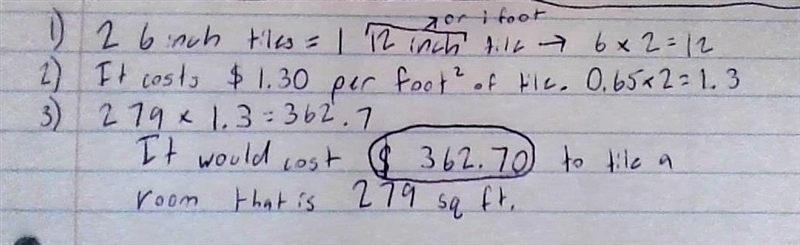 or 1 foot
1) 2 6 inch tiles = 1 12 inch tile → 6 x 2 = 12
2) It costs $ 1.30 per foot² of tile. 0.65x2 = 1.3
3) 279 x 1.3 = 362.7
It would cost $ 362.70 to tile a
room that is 279 sq ft.